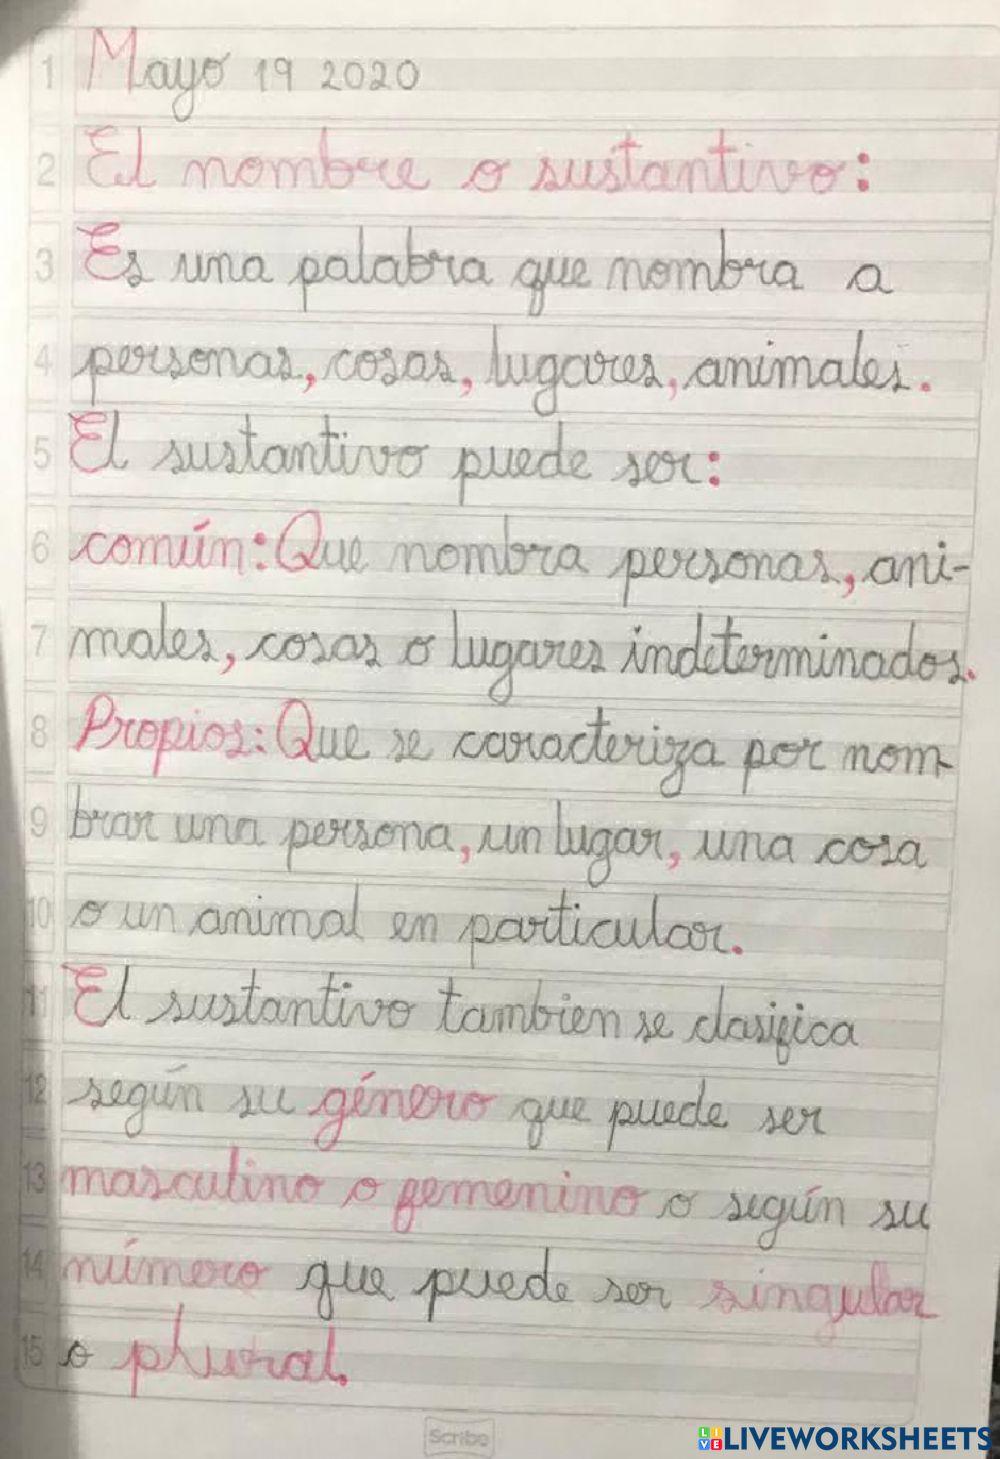 1 Mayo 19 2020
2 El nombre o sustantivo:
3 Es una palabra que nombra a
4 personas, cosas, lugares, animales.
5 El sustantivo puede ser:
6 común: Que nombra personas, ani-
7 males, cosas o lugares indeterminados.
8 Propios: Que se caracteriza por nom-
9 brar una persona, un lugar, una cosa
10 o un animal en particular.
11 El sustantivo tambien se clasifica
12 según su género que puede ser
13 masculino o femenino o según su
14 número que puede ser singular
15 o plural.
Scribe
LIVEWORKSHEETS